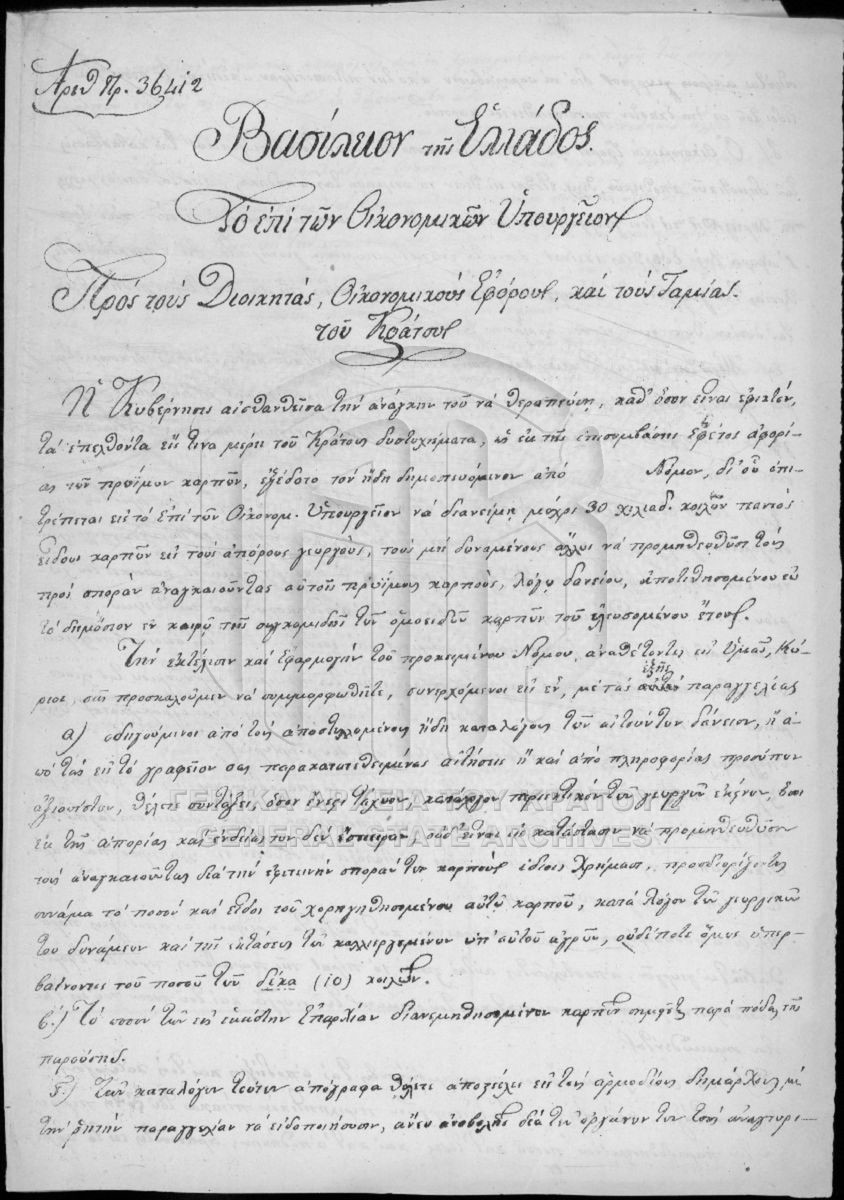 Αριθ Πρ. 36412
Βασίλειον τῆς Ἑλλάδος.
Τό ἐπί τῶν Οἰκονομικῶν Ὑπουργεῖον
Πρός τούς Διοικητάς, Οἰκονομικούς Ἐφόρους, καί τούς Ταμίας.
τοῦ Κράτους
Ἡ Κυβέρνησις αἰσθανθεῖσα τήν ἀνάγκην τοῦ νά θεραπεύσῃ, καθ' ὅσον εἶναι ἐφικτόν,
τά ἐπελθόντα εἴς τινα μέρη τοῦ Κράτους δυστυχήματα, ὡς ἐκ τῆς ἐπισυμβάσης ἐφέτος ἀφορί-
ας τῶν πρωΐμων καρπῶν, ἐξέδοτο τόν ἤδη δημοσιευόμενον ἀπό Νόμον, δι' οὗ ἐπι-
τρέπεται εἰς τό ἐπί τῶν Οἰκονομ. Ὑπουργεῖον νά διανείμῃ μέχρις 30 χιλιάδ. κοιλῶν παντός
εἴδους καρπῶν εἰς τούς ἀπόρους γεωργούς, τούς μή δυναμένους ἄλλως νά προμηθευθῶσι τούς
πρός σποράν ἀναγκαιοῦντας αὐτοῖς πρωΐμους καρπούς, λόγῳ δανείου, ἀποτιθησομένου εἰς
τό δημόσιον ἐν καιρῷ τῆς συγκομιδῆς τῶν ὁμοειδῶν καρπῶν τοῦ ἐλευσομένου ἔτους.
Τήν ἐκτέλεσιν καί ἐφαρμογήν τοῦ προκειμένου Νόμου ἀναθέτοντες εἰς Ὑμᾶς, Κύ-
ριοι, σᾶς προσκαλοῦμεν νά συμμορφωθῆτε, συνερχόμενοι εἰς ἕν, μέ τάς ἑξῆς παραγγελίας
α) ὁδηγούμενοι ἀπό τούς ἀποστελλομένους ἤδη καταλόγους τῶν αἰτούντων δάνειον, ἤ ἀ-
πό τάς εἰς τό γραφεῖον σας παρακατατεθειμένας αἰτήσεις ἤ καί ἀπό πληροφορίας προσώπων
ἀξιοπίστων, θέλετε συντάξει, ὅσον ἔνεστι τάχιον, κατάλογον περιεκτικόν τῶν γεωργῶν ἐκείνων, ὅσοι
ἐκ τῆς ἀπορίας καί ἐνδείας των δέν ἔσπειραν, οὐδ' εἶναι εἰς κατάστασιν νά προμηθευθῶσιν
τούς ἀναγκαιοῦντας διά τήν ἐφετεινήν σποράν των καρπούς ἰδίοις χρήμασι, προσδιορίζοντες
συνάμα τό ποσόν καί εἶδος τοῦ χορηγηθησομένου αὐτῷ καρποῦ, κατά λόγον τῶν γεωργικῶν
του δυνάμεων καί τῆς ἐκτάσεως τῶν καλλιεργημένων ὑπ' αὐτοῦ ἀγρῶν, οὐδέποτε ὅμως ὑπερ-
βαίνοντες τοῦ ποσοῦ τῶν δέκα (10) κοιλῶν.
β.) Τό ποσόν τῶν εἰς ἑκάστην Ἐπαρχίαν διανεμηθησομένων καρπῶν παρά πόδας τῆς
παρούσης.
γ.) Τῶν καταλόγων τούτων ἀπόγραφα θέλετε ἀποστείλει εἰς τούς ἁρμοδίους δημάρχους, μέ
τήν ῥητήν παραγγελίαν νά εἰδοποιήσωσιν, ἄνευ ἀναβολῆς διά τῶν ὀργάνων των τούς